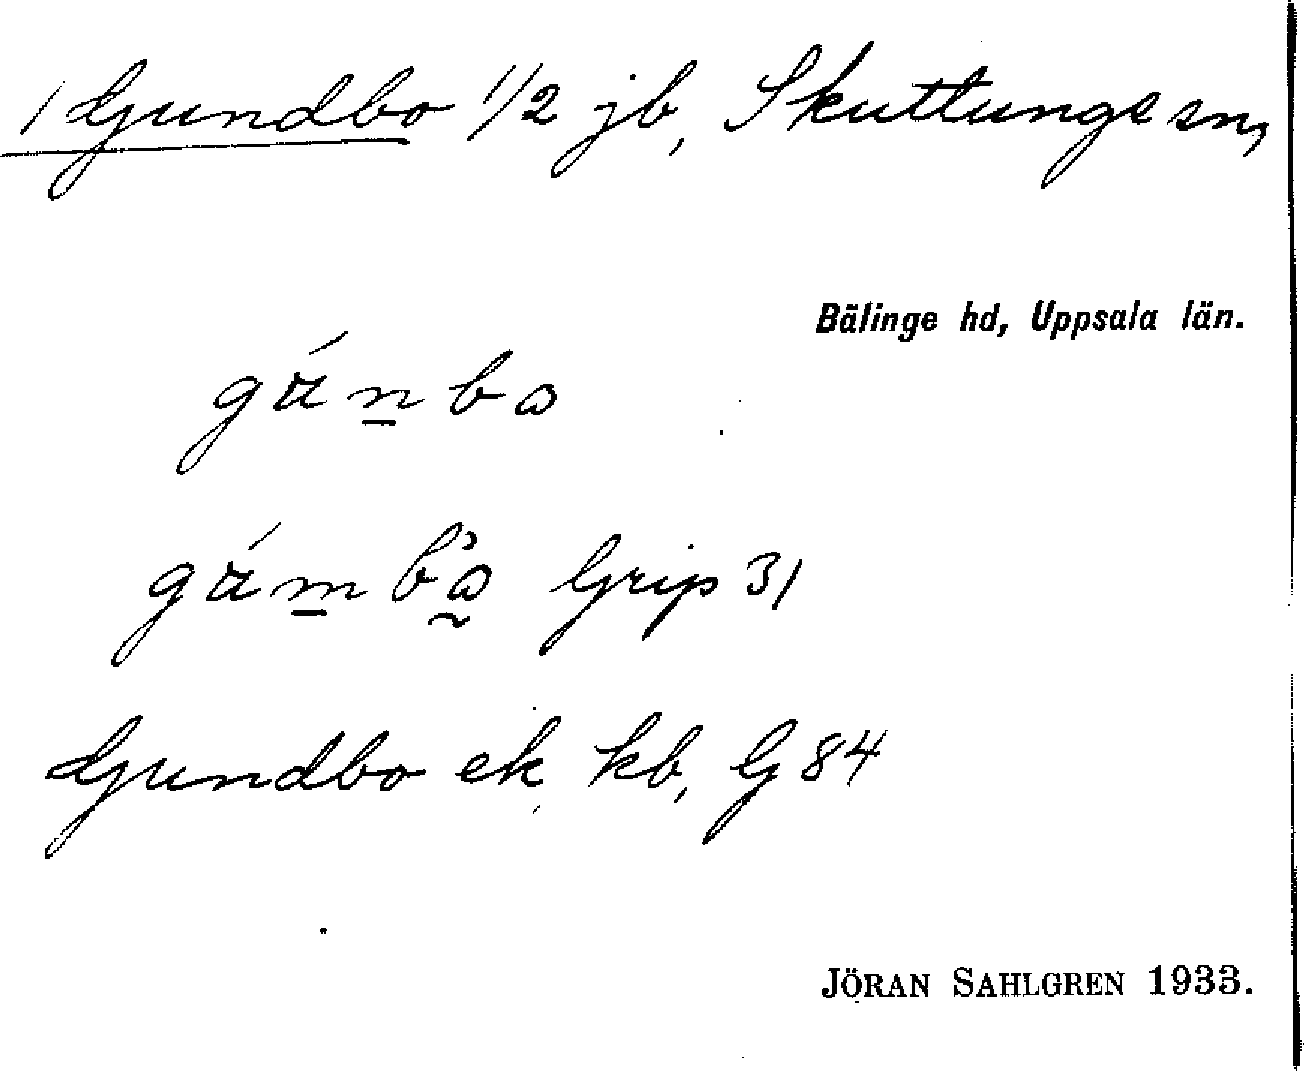 1 Gundbo 1/2 jb, Skuttunge sn,
Bälinge hd, Uppsala län.
Gundbo ek kb, G 84
Grip 31
JÖRAN SAHLGREN 1933.